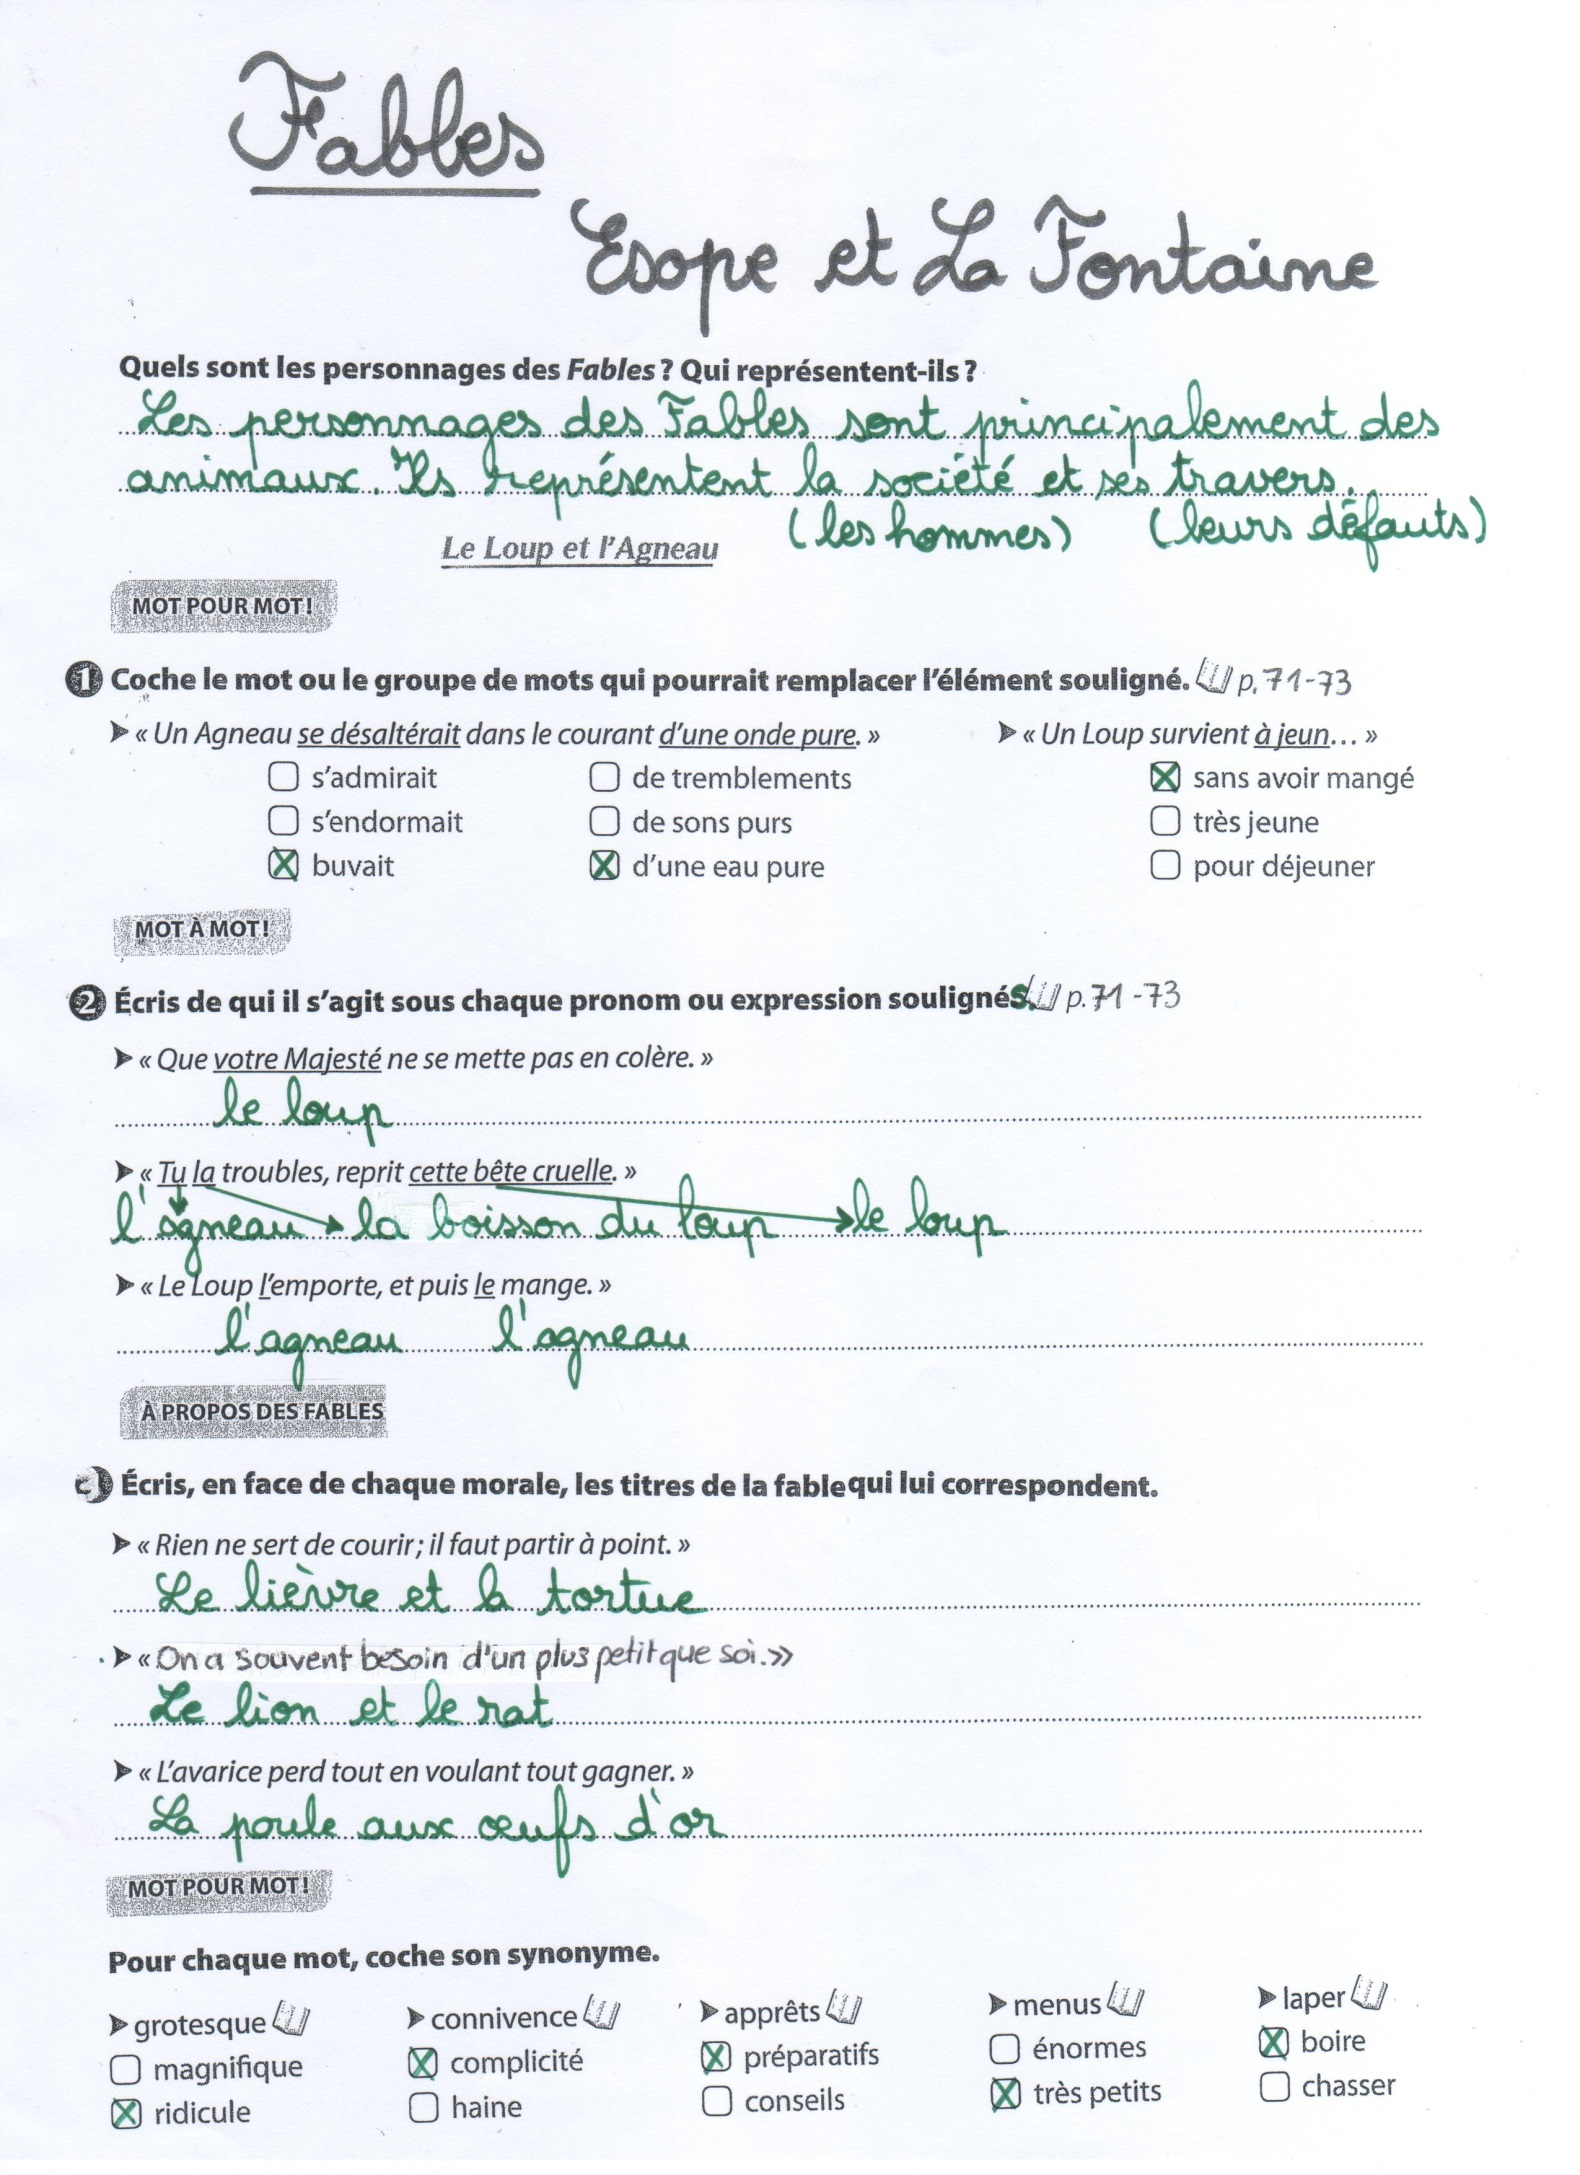 Fables
Esope et La Fontaine
Quels sont les personnages des Fables ? Qui représentent-ils ?
Les personnages des Fables sont principalement des
animaux. Ils représentent la société et ses travers.
(les hommes) (leurs défauts)
Le Loup et l'Agneau
MOT POUR MOT !
1 Coche le mot ou le groupe de mots qui pourrait remplacer l'élément souligné. p. 71-73
« Un Agneau se désaltérait dans le courant d'une onde pure. » « Un Loup survient à jeun... »
s'admirait de tremblements sans avoir mangé
s'endormait de sons purs très jeune
buvait d'une eau pure pour déjeuner
MOT À MOT !
2 Écris de qui il s'agit sous chaque pronom ou expression soulignés. p. 71-73
« Que votre Majesté ne se mette pas en colère. »
le loup
« Tu la troubles, reprit cette bête cruelle. »
l'agneau la boisson du loup le loup
« Le Loup l'emporte, et puis le mange. »
l'agneau l'agneau
À PROPOS DES FABLES
Écris, en face de chaque morale, les titres de la fable qui lui correspondent.
« Rien ne sert de courir ; il faut partir à point. »
Le lièvre et la tortue
« On a souvent besoin d'un plus petit que soi. »
Le lion et le rat
« L'avarice perd tout en voulant tout gagner. »
La poule aux œufs d'or
MOT POUR MOT !
Pour chaque mot, coche son synonyme.
grotesque connivence apprêts menus laper
magnifique complicité préparatifs énormes boire
ridicule haine conseils très petits chasser